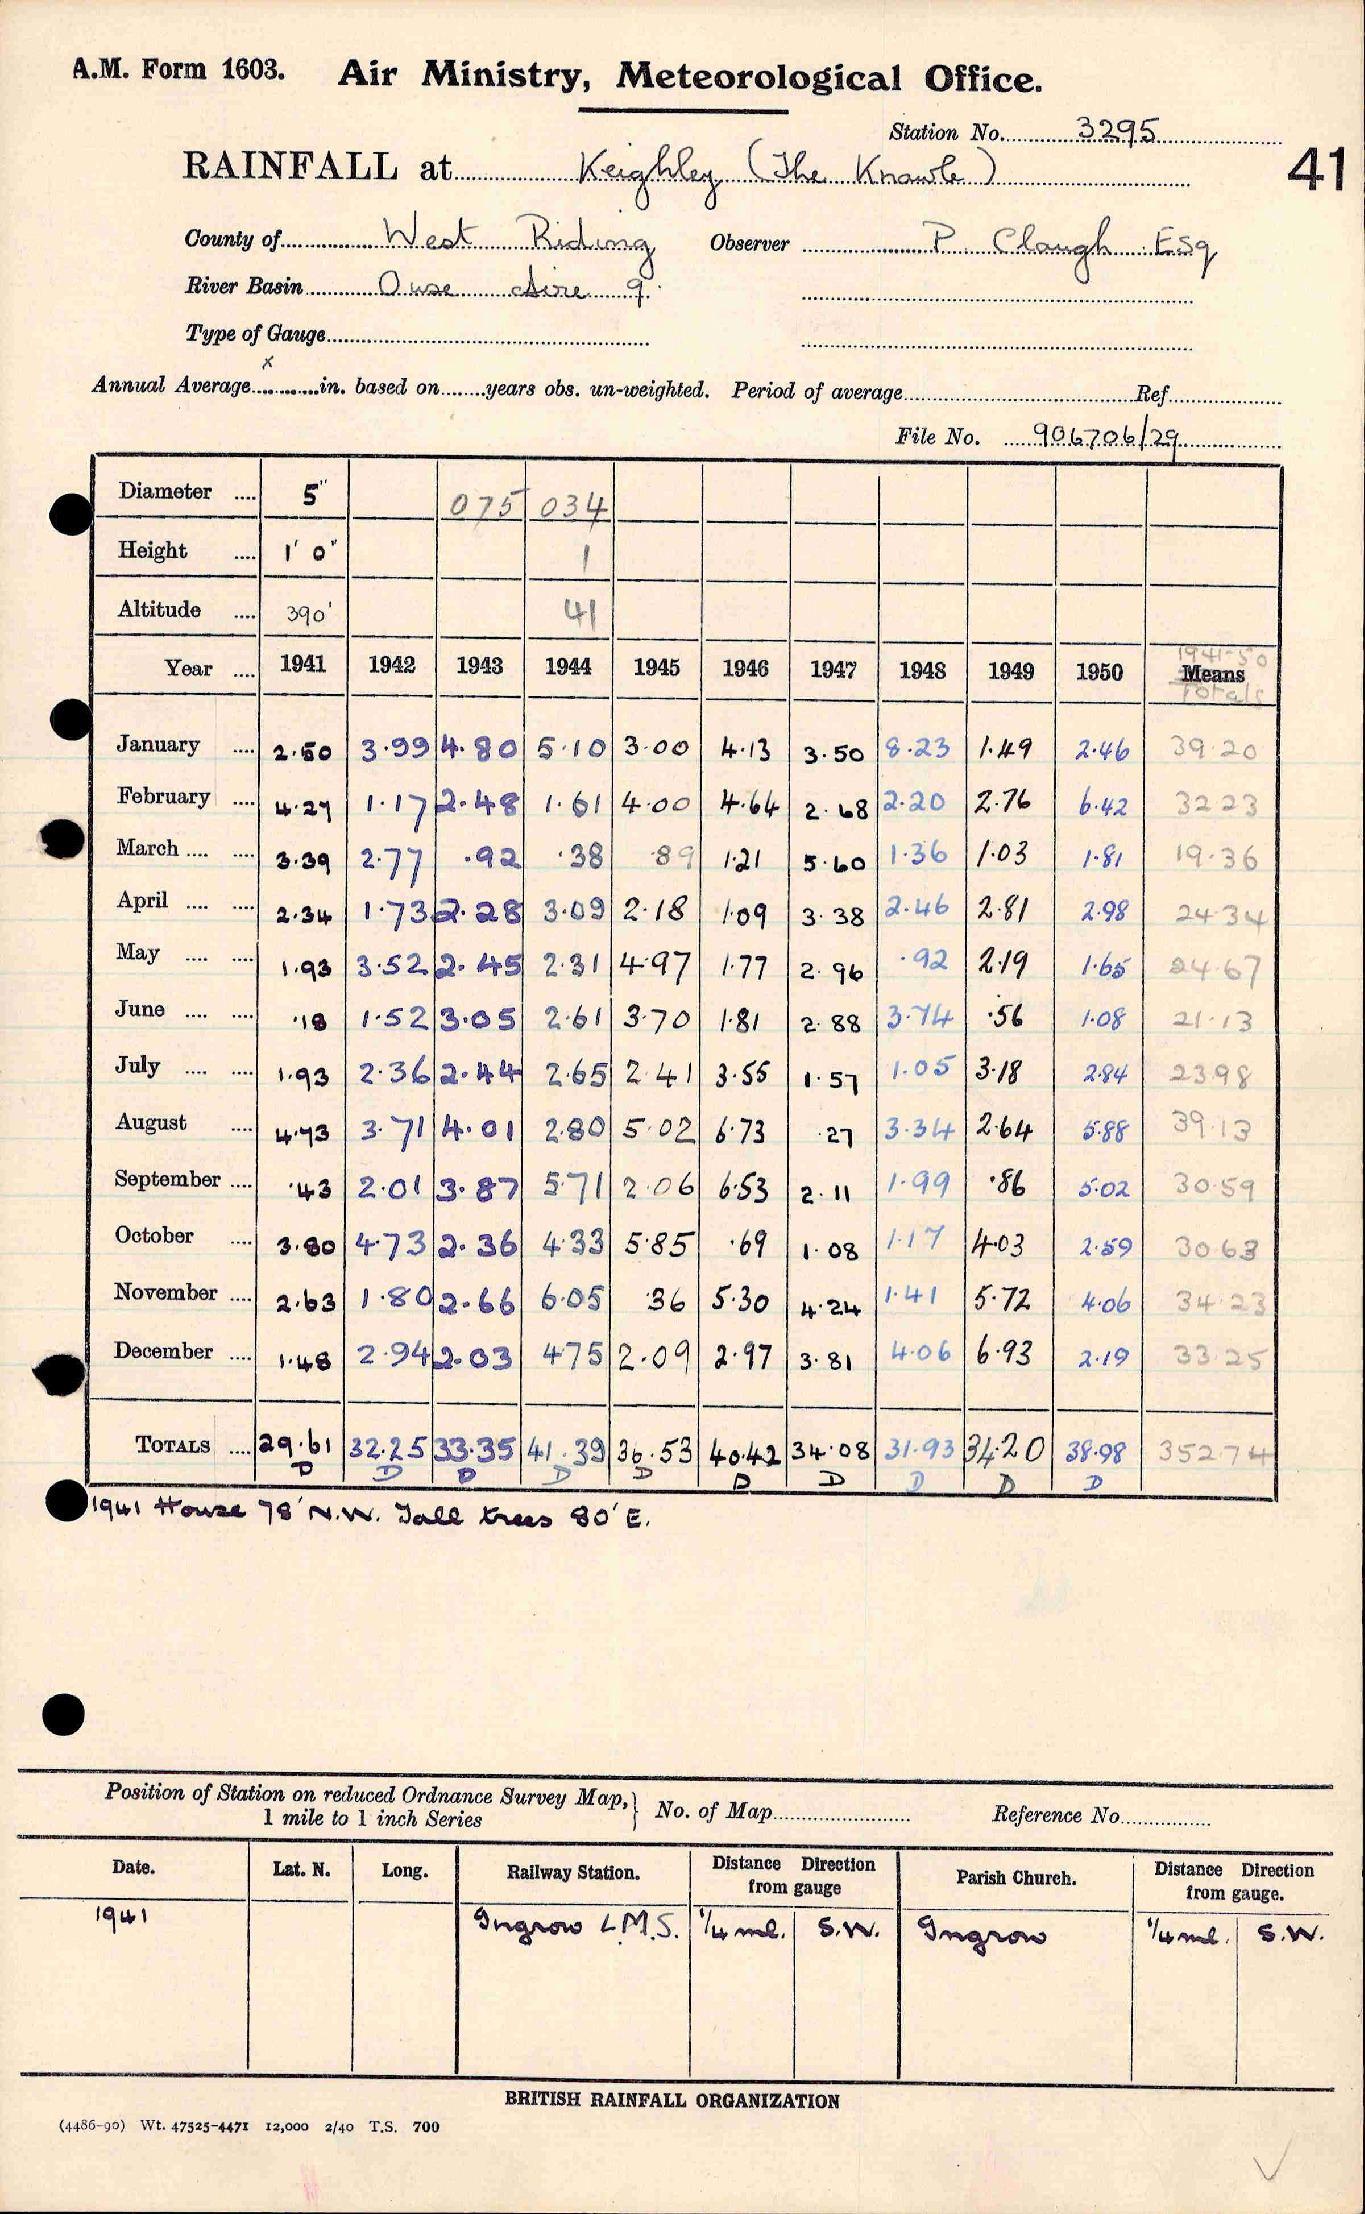 A.M. Form 1603. Air Ministry, Meteorological Office.
Station No. 3295
41
RAINFALL at Keighley (The Knowle)
County of West Riding Observer P. Clough Esq
River Basin Ouse Aire 9.
Type of Gauge
x
Annual Average in. based on years obs. un-weighted. Period of average Ref
File No. 906706/29
Diameter .... 5" 075 034
Height .... 1' 0" 1
Altitude .... 390' 41
Year .... 1941 1942 1943 1944 1945 1946 1947 1948 1949 1950 1941-50 Means Totals
January .... 2.50 3.99 4.80 5.10 3.00 4.13 3.50 8.23 1.49 2.46 39.20
February .... 4.27 1.17 2.48 1.61 4.00 4.64 2.68 2.20 2.76 6.42 32 23
March .... .... 3.39 2.77 .92 .38 .89 1.21 5.60 1.36 1.03 1.81 19.36
April .... .... 2.34 1.73 2.28 3.09 2.18 1.09 3.38 2.46 2.81 2.98 24.34
May .... .... 1.93 3.52 2.45 2.31 4.97 1.77 2.96 .92 2.19 1.65 24.67
June .... .... .18 1.52 3.05 2.61 3.70 1.81 2.88 3.74 .56 1.08 21.13
July .... .... 1.93 2.36 2.44 2.65 2.41 3.55 1.57 1.05 3.18 2.84 23.98
August .... 4.73 3.71 4.01 2.80 5.02 6.73 .27 3.34 2.64 5.88 39.13
September .... .43 2.01 3.87 5.71 2.06 6.53 2.11 1.99 .86 5.02 30.59
October .... 3.80 4.73 2.36 4.33 5.85 .69 1.08 1.17 4.03 2.59 30.63
November .... 2.63 1.80 2.66 6.05 .36 5.30 4.24 1.41 5.72 4.06 34.23
December .... 1.48 2.94 2.03 4.75 2.09 2.97 3.81 4.06 6.93 2.19 33.25
TOTALS .... 29.61 32.25 33.35 41.39 36.53 40.42 34.08 31.93 34.20 38.98 352.74
D D D D D D D D D D
1941 House 78' N.W. Tall trees 80' E.
Position of Station on reduced Ordnance Survey Map, 1 mile to 1 inch Series } No. of Map Reference No.
Date. Lat. N. Long. Railway Station. Distance Direction from gauge Parish Church. Distance Direction from gauge.
1941 Ingrow L.M.S. 1/4 ml. S.W. Ingrow 1/4 ml. S.W.
BRITISH RAINFALL ORGANIZATION
(4486-90) Wt. 47525-4471 12,000 2/40 T.S. 700